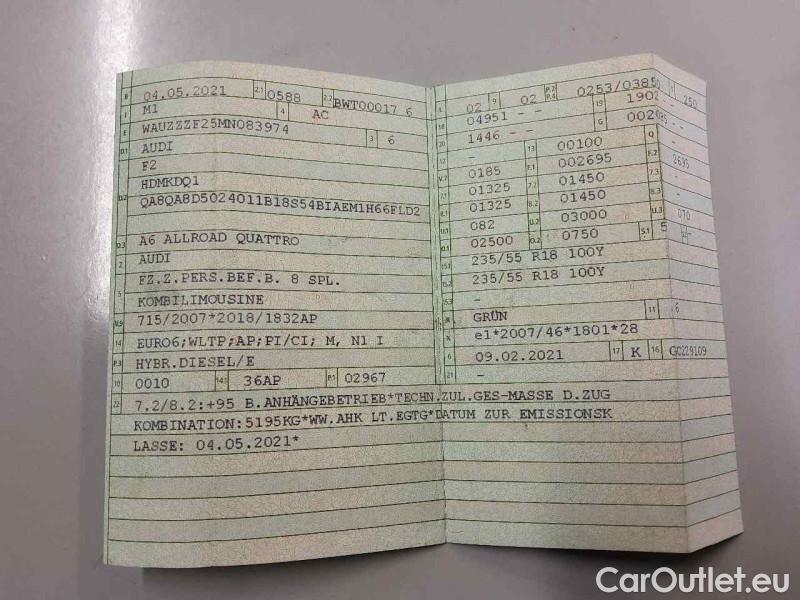 B 04.05.2021 2.1 0588 2.2 BWT00017 6
J M1 4 AC
E WAUZZZF25MN083974 3 6
D.1 AUDI
F2
D.2 HDMKDQ1
QA8QA8D5024011B18S54BIAEM1H66FLD2
D.3 A6 ALLROAD QUATTRO
2 AUDI
FZ.Z.PERS.BEF.B. 8 SPL.
5 KOMBILIMOUSINE
V.9 715/2007*2018/1832AP
14 EURO6;WLTP;AP;PI/CI; M, N1 I
P.3 HYBR.DIESEL/E
10 0010 14.1 36AP P.1 02967
22 7.2/8.2:+95 B.ANHÄNGEBETRIEB*TECHN.ZUL.GES-MASSE D.ZUG
KOMBINATION:5195KG*WW.AHK LT.EGTG*DATUM ZUR EMISSIONSK
LASSE: 04.05.2021*
L 02 9 02 P.2 P.4 0253/03850 T 250
18 04951 - - 19 1902 - -
20 1446 - - G 002085 - -
12 - 13 00100 Q
V.7 0185 F.1 002695 F.2 2695
7.1 01325 7.2 01450 7.3
8.1 01325 8.2 01450 8.3
U.1 082 U.2 03000 U.3 070
O.1 02500 O.2 0750 S.1 5
15.1 235/55 R18 100Y
15.2 235/55 R18 100Y
-
R GRÜN 11 6
K e1*2007/46*1801*28
6 09.02.2021 17 K 16 GC229109
21 -
CarOutlet.eu